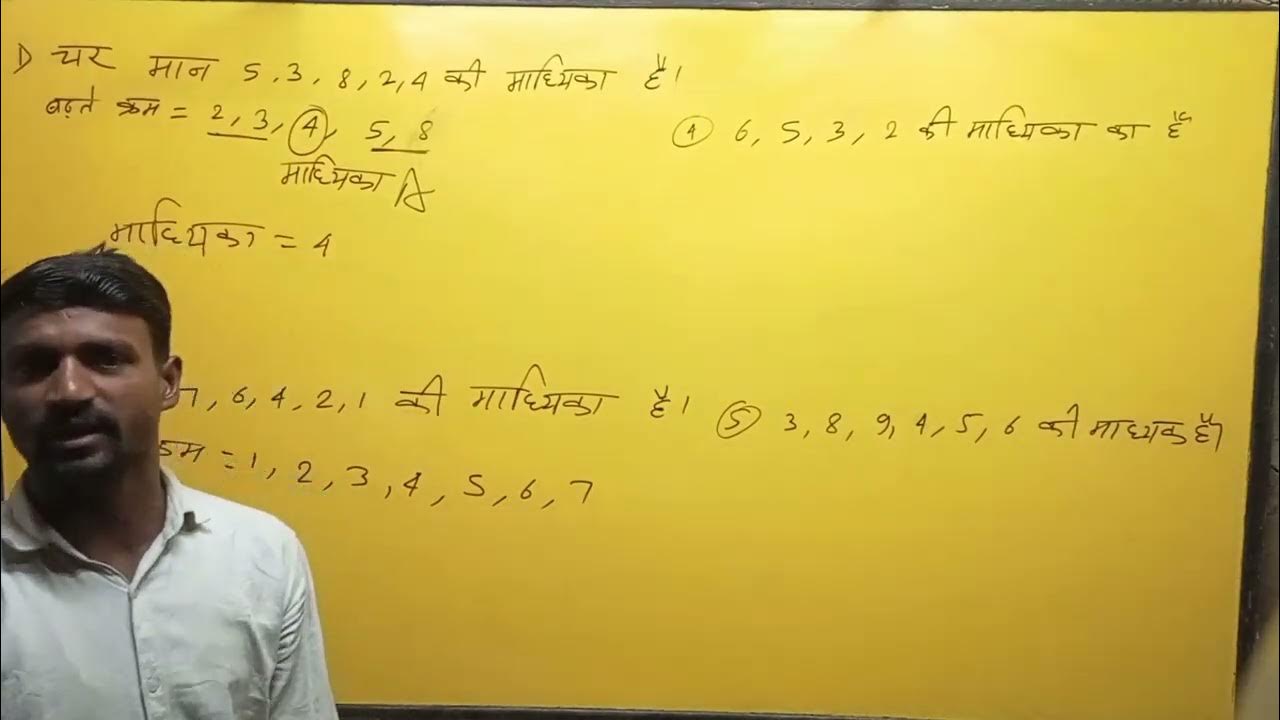 1) चर मान 5, 3, 8, 2, 4 की माध्यिका है।
बढ़ते क्रम = 2, 3, 4, 5, 8
माध्यिका
माध्यिका = 4
7, 6, 4, 2, 1 की माध्यिका है।
= 1, 2, 3, 4, 5, 6, 7
④ 6, 5, 3, 2 की माध्यिका का है
⑤ 3, 8, 9, 4, 5, 6 की माध्यक है।